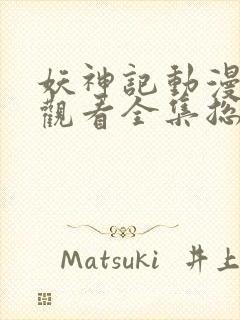 妖神記動漫
觀看全集総
Matsuki 井上